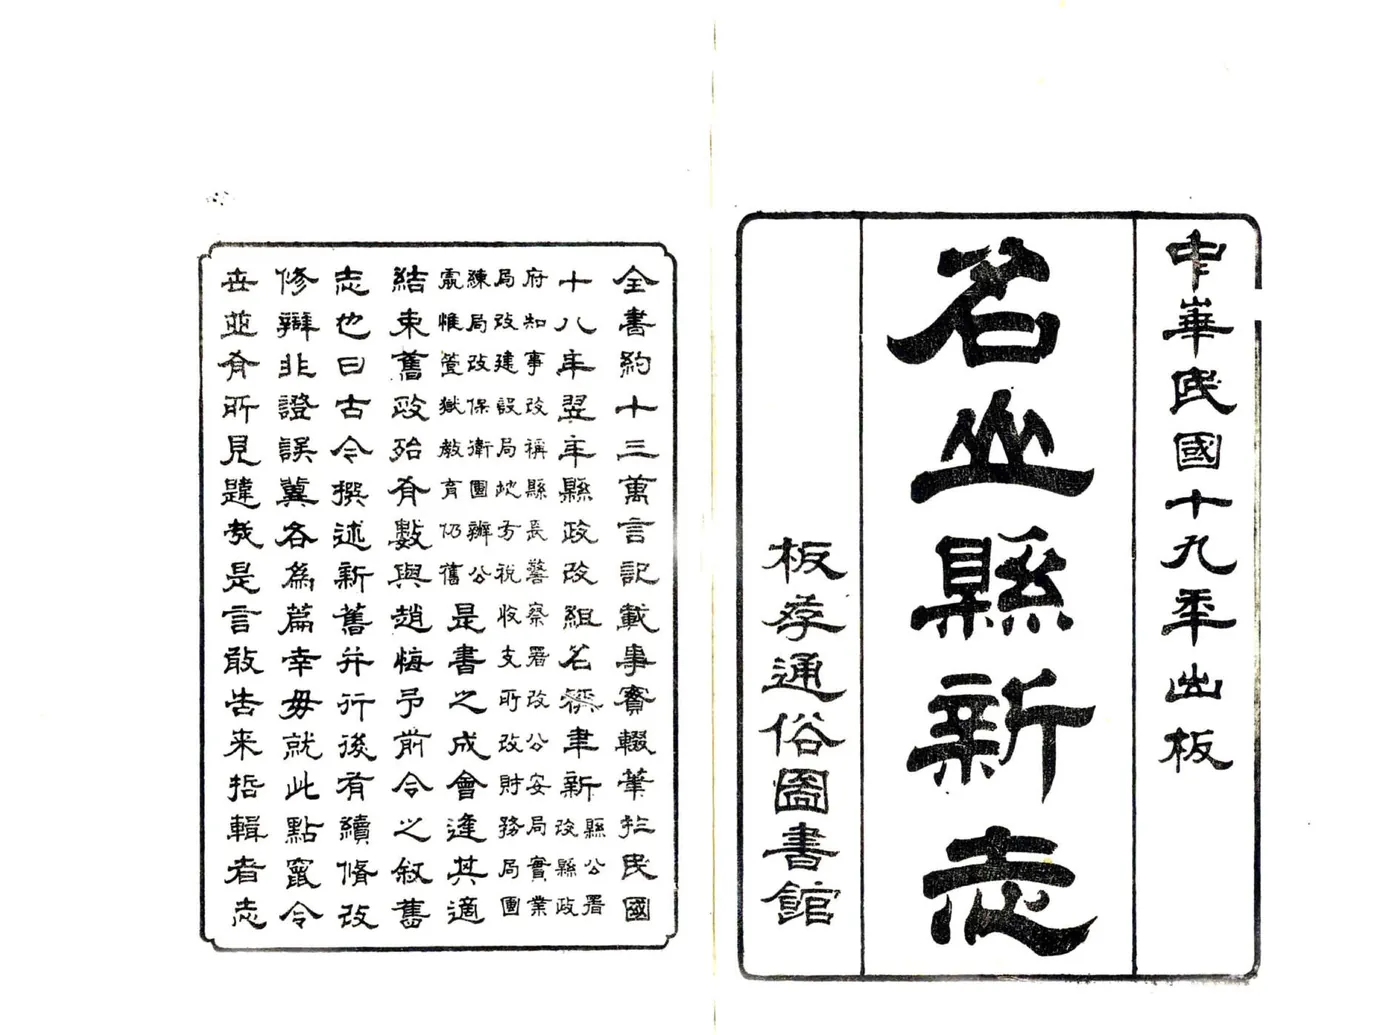 中華民國十九年出板
名山縣新志
板存通俗圖書館
全書約十三萬言記載事實輟筆於民國
十八年翌年縣政改組名稱聿新
縣公署
改縣政
府知事改稱縣長警察署改公安局實業
局改建設局地方稅收支所改財務局團
練局改保衛團辦公
處惟監獄教育仍舊
是書之成會逢其適
結束舊政殆有數與趙悔予前令之敘舊
志也曰古今撰述新舊并行後有續脩改
修辯非證誤冀各為篇幸毋就此點竄令
世並有所見韙哉是言敢告來哲輯者志